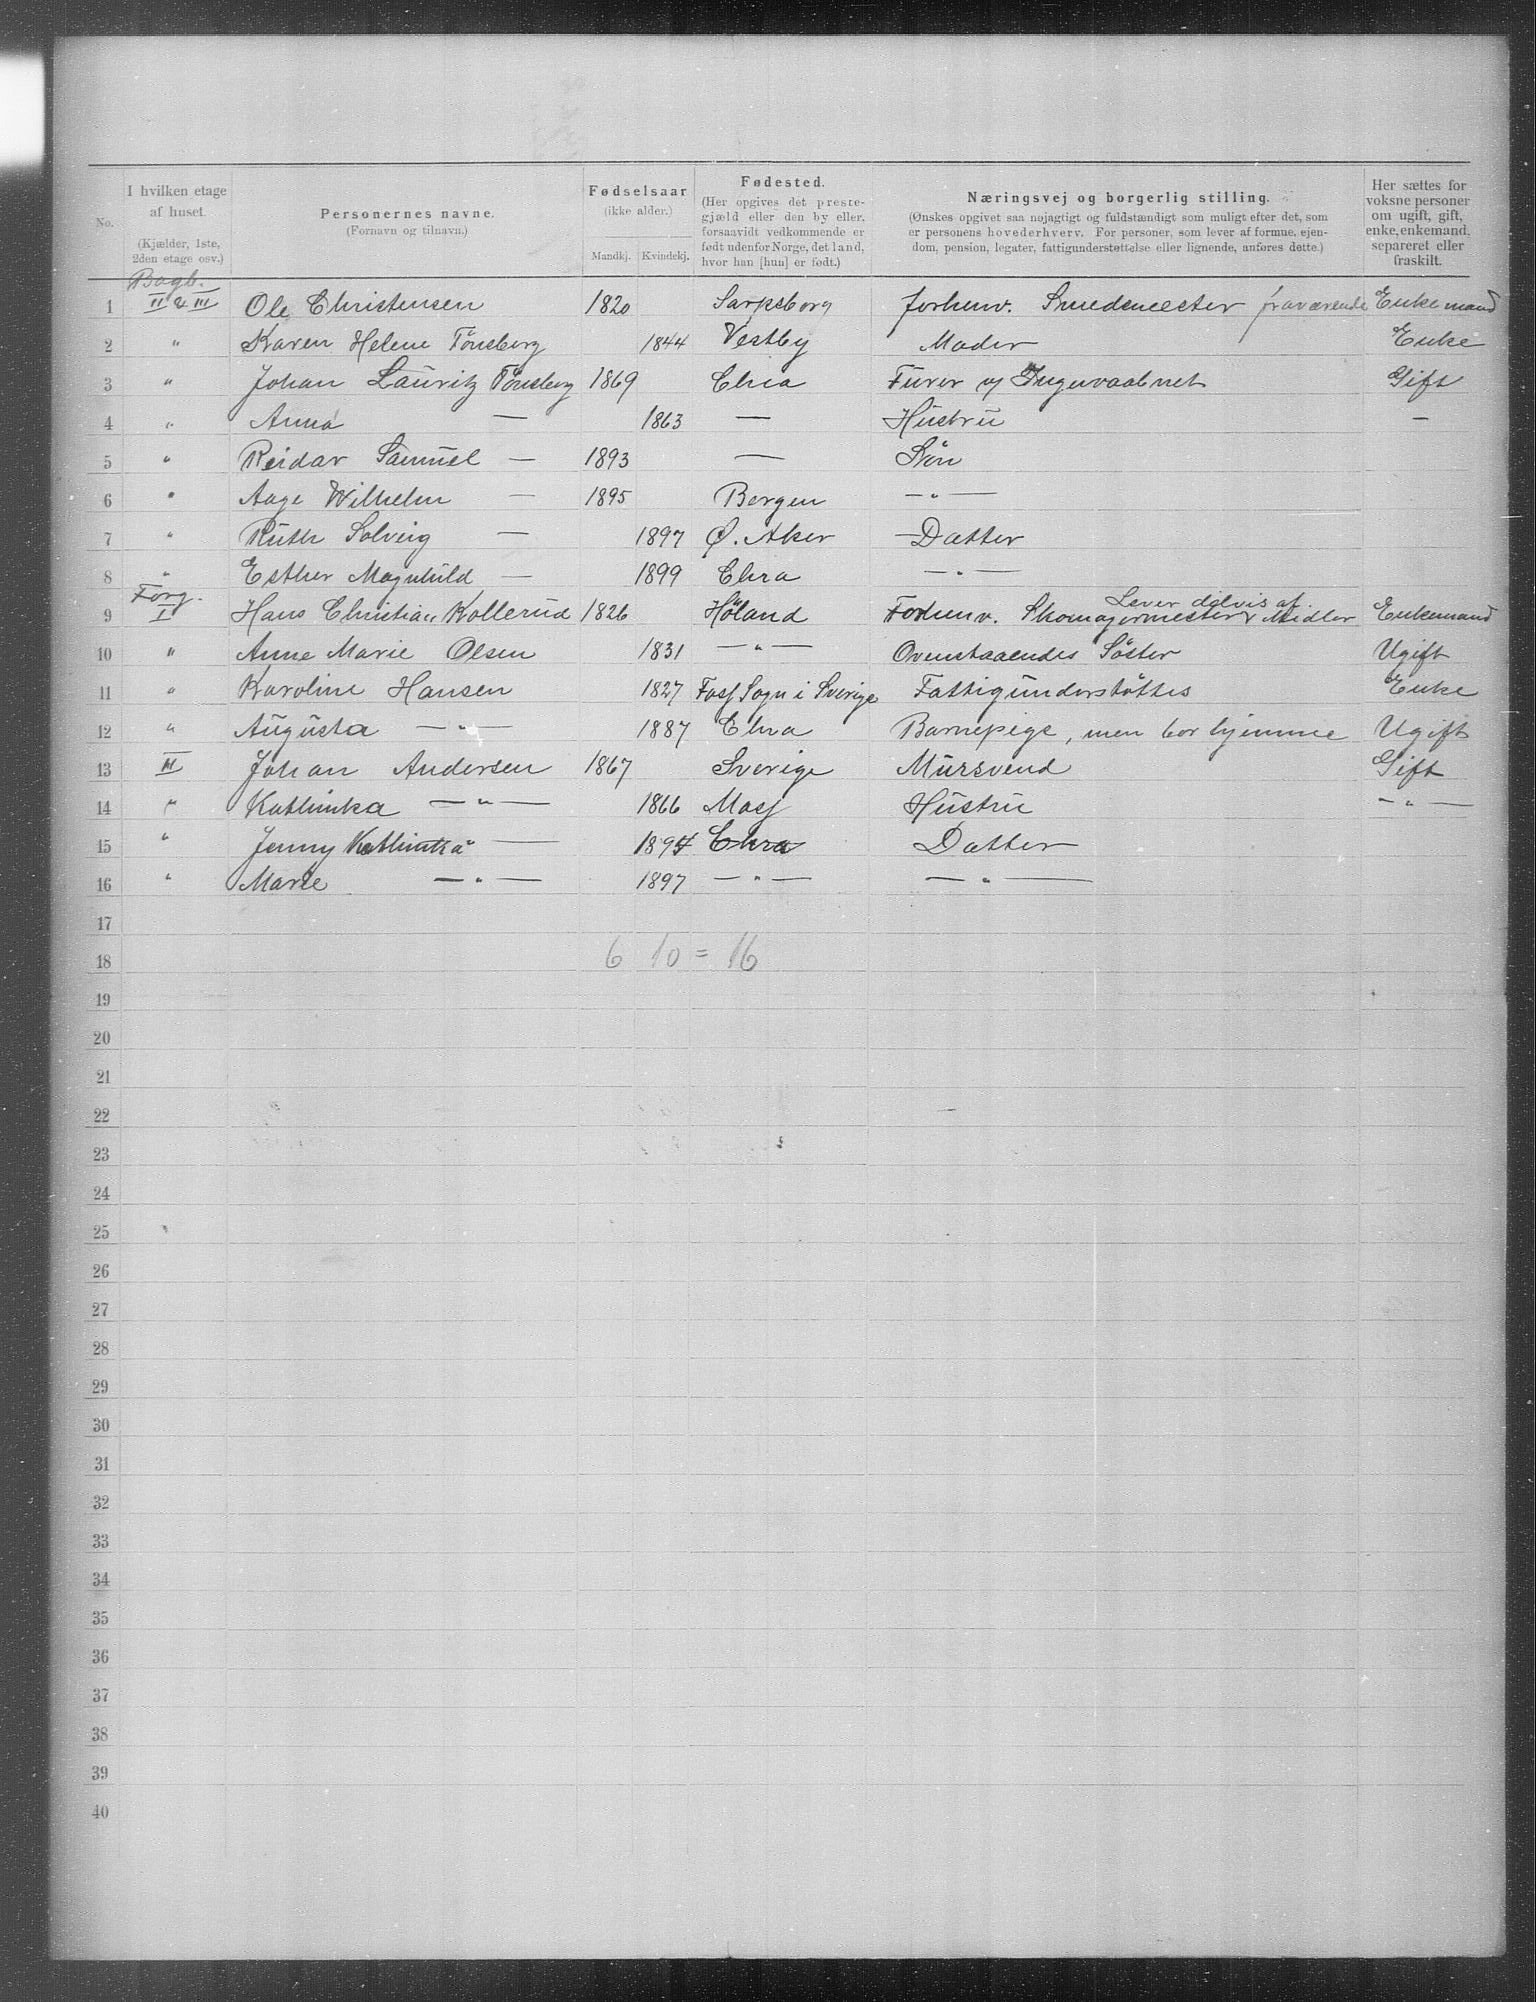 No. I hvilken etage af huset. (Kjælder, 1ste, 2den etage osv.) Personernes navne. (Fornavn og tilnavn.) Fødselsaar (ikke alder.) Mandkj. Kvindekj. Fødested. (Her opgives det prestegjæld eller den by eller, forsaavidt vedkommende er født udenfor Norge, det land, hvor han [hun] er født.) Næringsvej og borgerlig stilling. (Ønskes opgivet saa nøjagtigt og fuldstændigt som muligt efter det, som er personens hovederhverv. For personer, som lever af formue, ejendom, pension, legater, fattigunderstøttelse eller lignende, anføres dette.) Her sættes for voksne personer om ugift, gift, enke, enkemand, separeret eller fraskilt.
Bagb.
1 II & III Ole Christensen 1820 Sarpsborg forhenv. Smedemester fraværende Enkemand
2 " Karen Helene Tönsberg 1844 Vestby Moder Enke
3 " Johan Lauritz Tönsberg 1869 Chra Furer v/ Ingeniørvaabnet Gift
4 " Anna — 1863 — Hustru —
5 " Reidar Samuel — 1893 — Sön
6 " Aage Wilhelm — 1895 Bergen — " —
7 " Ruth Solveig — 1897 Ø. Aker Datter
8 " Esther Magnhild — 1899 Chra — " —
Forg.
9 I Hans Christian Kollerud 1826 Höland Forhenv. Skomagermester Lever delvis af Midler Enkemand
10 " Anne Marie Olsen 1831 — " — Ovenstaaendes Söster Ugift
11 " Karoline Hansen 1827 Foss Sogn i Sverige Fattigunderstöttes Enke
12 " Augusta — " — 1887 Chra Barnepige, men bor hjemme Ugift
13 II Johan Andersen 1867 Sverige Mursvend Gift
14 " Kathinka — " — 1866 Moss Hustru — " —
15 " Jenny Kathinka — 1894 Chra Datter
16 " Marie — " — 1897 — " — — " —
17
18 6 10 = 16
19
20
21
22
23
24
25
26
27
28
29
30
31
32
33
34
35
36
37
38
39
40